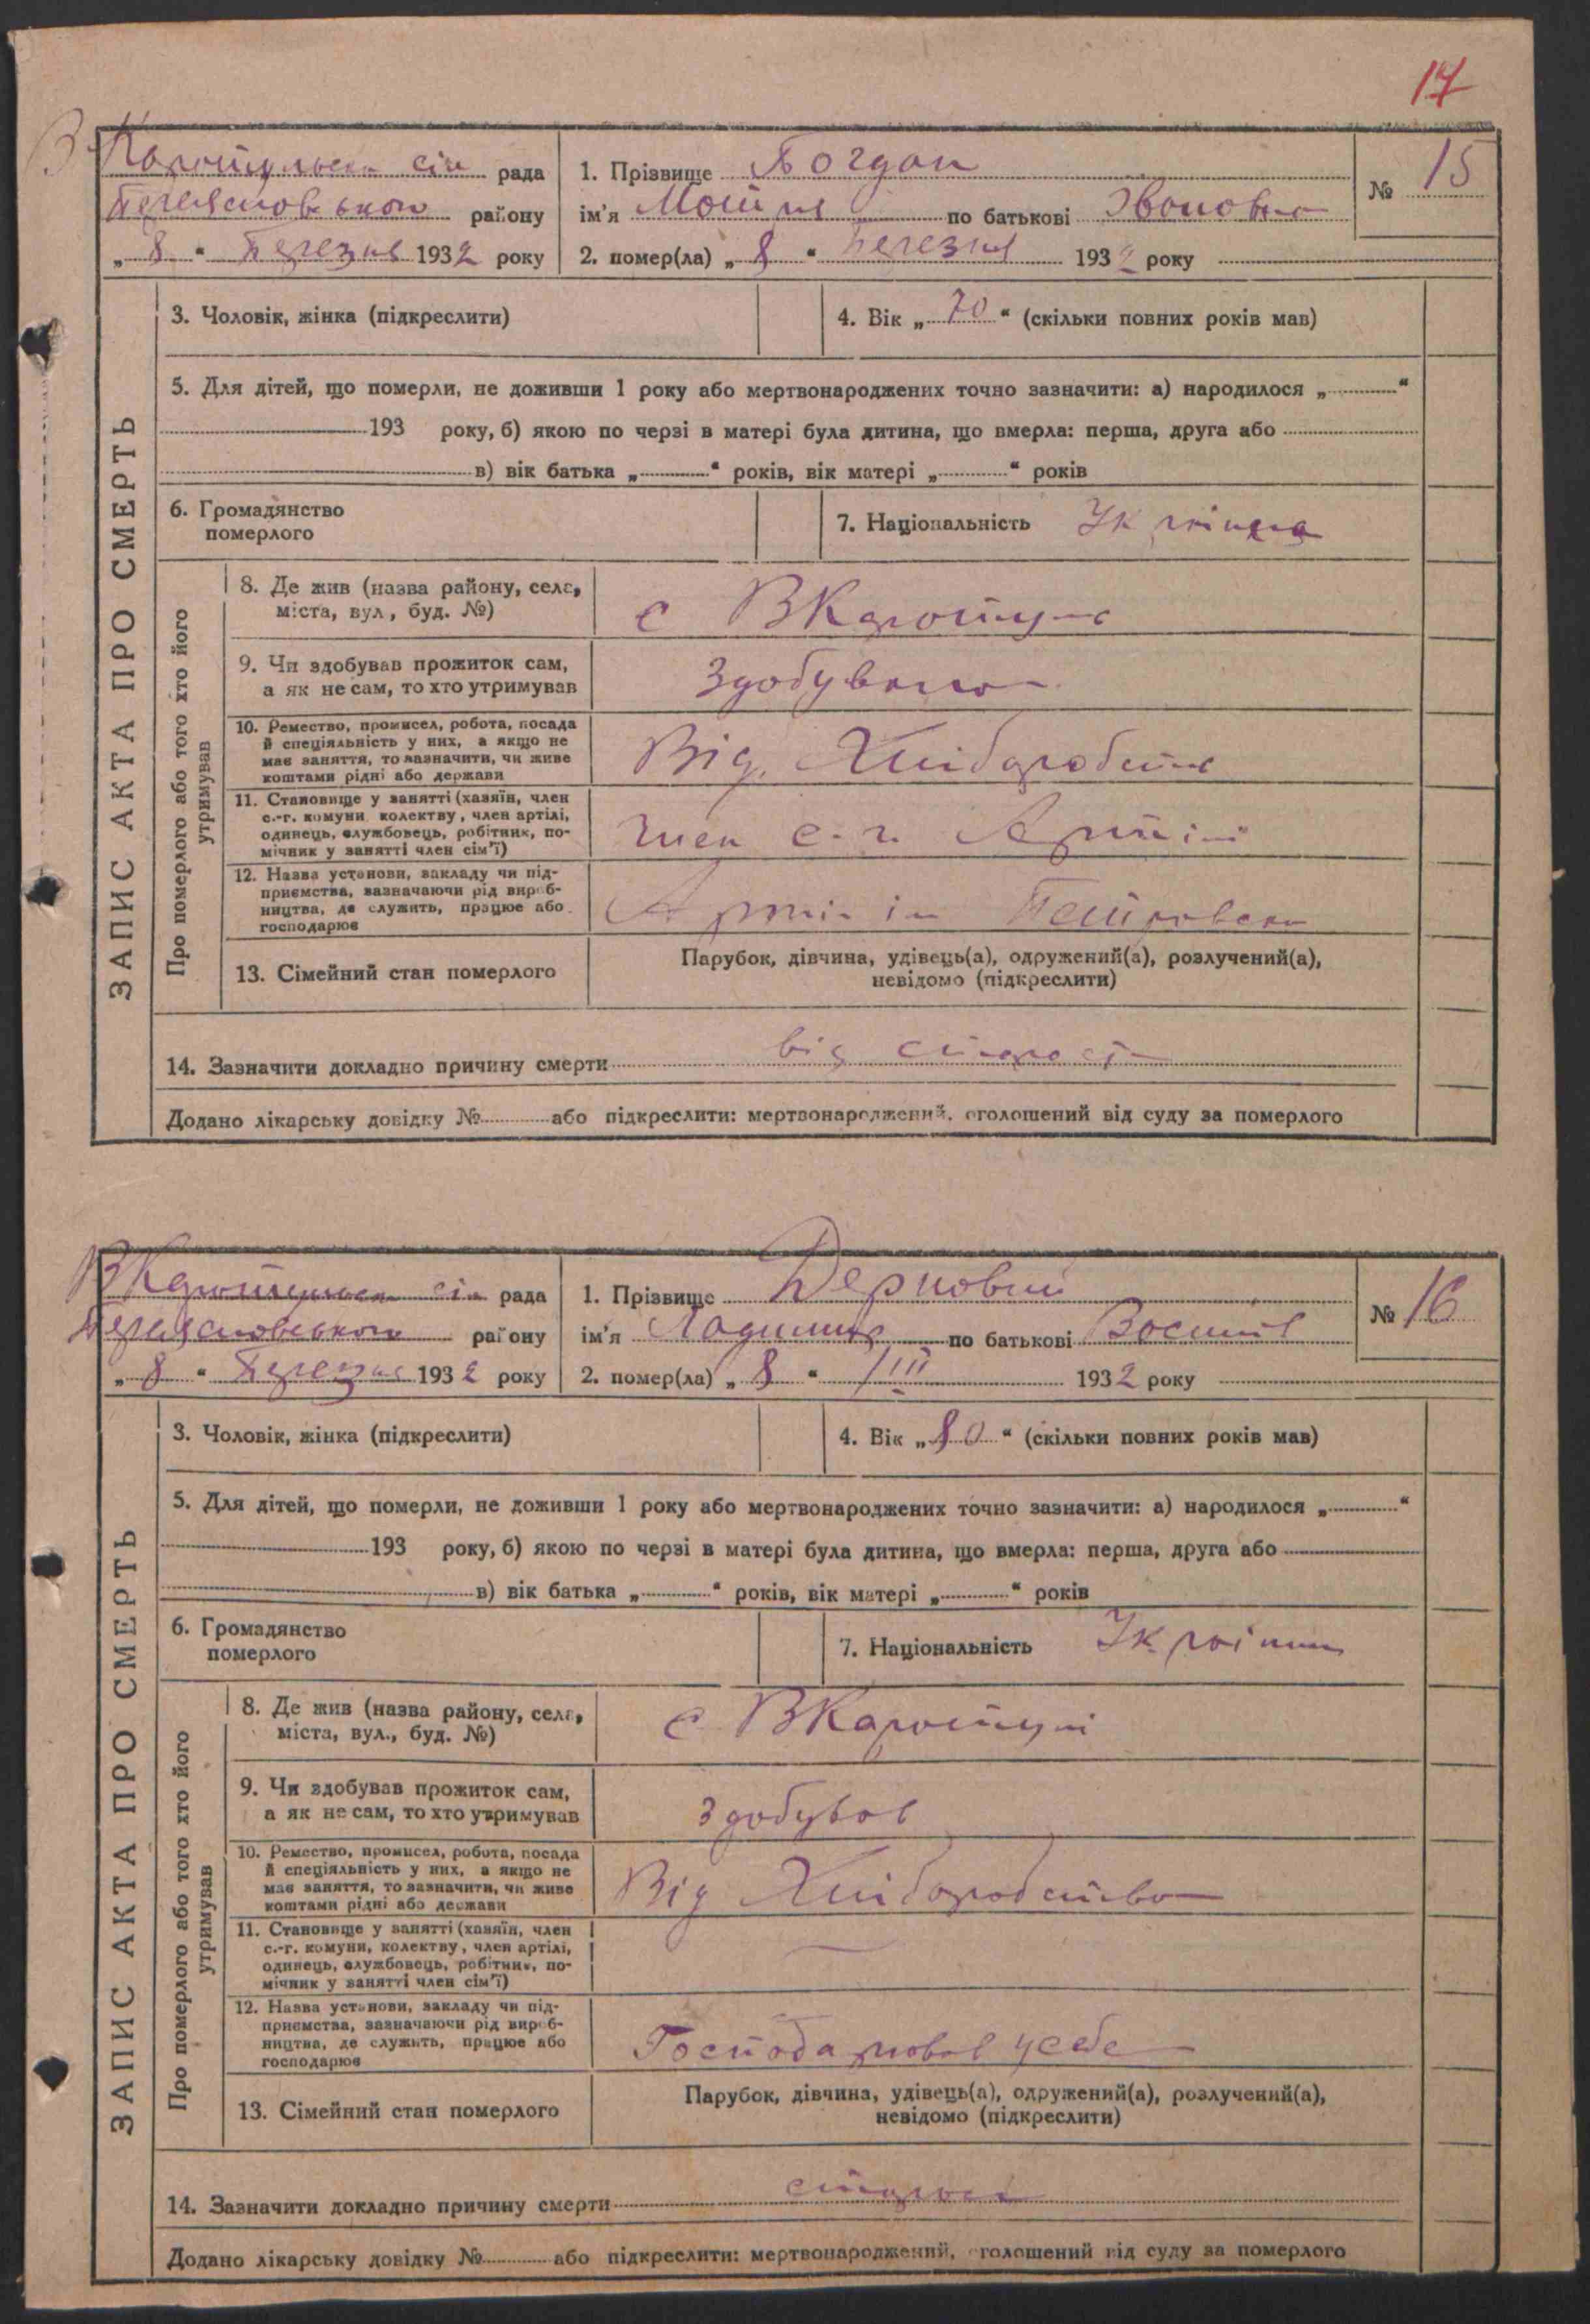 17
В Каротульська сіл рада
Переяславського району
„ 8 “ Березня 1932 року
1. Прізвище Богдан
ім'я Мотря по батькові Івановна
2. помер(ла) „ 8 “ Березня 1932 року
№ 15
ЗАПИС АКТА ПРО СМЕРТЬ
3. Чоловік, жінка (підкреслити)
4. Вік „ 70 “ (скільки повних років мав)
5. Для дітей, що померли, не доживши 1 року або мертвонароджених точно зазначити: а) народилося „ “
193 року, б) якою по черзі в матері була дитина, що вмерла: перша, друга або
в) вік батька „ “ років, вік матері „ “ років
6. Громадянство
померлого
7. Національність Українка
Про померлого або того хто його
утримував
8. Де жив (назва району, села,
міста, вул., буд. №)
с ВКаротуль
9. Чи здобував прожиток сам,
а як не сам, то хто утримував
Здобувала
10. Ремество, промисел, робота, посада
й спеціяльність у них, а якщо не
має заняття, то зазначити, чи живе
коштами рідні або держави
Від. Хліборобства
11. Становище у занятті (хазяїн, член
с.-г. комуни колективу, член артілі,
одинець, службовець, робітник, по-
мічник у занятті член сім'ї)
Член с. г. Артілі
12. Назва установи, закладу чи під-
приємства, зазначаючи рід вироб-
ництва, де служить, працює або
господарює
Артіль ім Петровськ
13. Сімейний стан померлого
Парубок, дівчина, удівець(а), одружений(а), розлучений(а),
невідомо (підкреслити)
14. Зазначити докладно причину смерти від старости
Додано лікарську довідку № або підкреслити: мертвонароджений, оголошений від суду за померлого
ВКаротульська сіл рада
Переяславського району
„ 8 “ Березня 1932 року
1. Прізвище Дерновий
ім'я по батькові Восилів
2. помер(ла) „ 8 “ III 1932 року
№ 16
ЗАПИС АКТА ПРО СМЕРТЬ
3. Чоловік, жінка (підкреслити)
4. Вік „ 80 “ (скільки повних років мав)
5. Для дітей, що померли, не доживши 1 року або мертвонароджених точно зазначити: а) народилося „ “
193 року, б) якою по черзі в матері була дитина, що вмерла: перша, друга або
в) вік батька „ “ років, вік матері „ “ років
6. Громадянство
померлого
7. Національність Українець
Про померлого або того хто його
утримував
8. Де жив (назва району, села,
міста, вул., буд. №)
с ВКаротулі
9. Чи здобував прожиток сам,
а як не сам, то хто утримував
здобував
10. Ремество, промисел, робота, посада
й спеціяльність у них, а якщо не
має заняття, то зазначити, чи живе
коштами рідні або держави
Від Хліборобства
11. Становище у занятті (хазяїн, член
с.-г. комуни, колективу, член артілі,
одинець, службовець, робітник, по-
мічник у занятті член сім'ї)
12. Назва установи, закладу чи під-
приємства, зазначаючи рід вироб-
ництва, де служить, працює або
господарює
Господарював у себе
13. Сімейний стан померлого
Парубок, дівчина, удівець(а), одружений(а), розлучений(а),
невідомо (підкреслити)
14. Зазначити докладно причину смерти старості
Додано лікарську довідку № або підкреслити: мертвонароджений, оголошений від суду за померлого